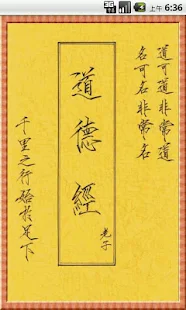 3G
上午 6:36
道可道非常道
名可名非常名
道德經
老子
千里之行始於足下